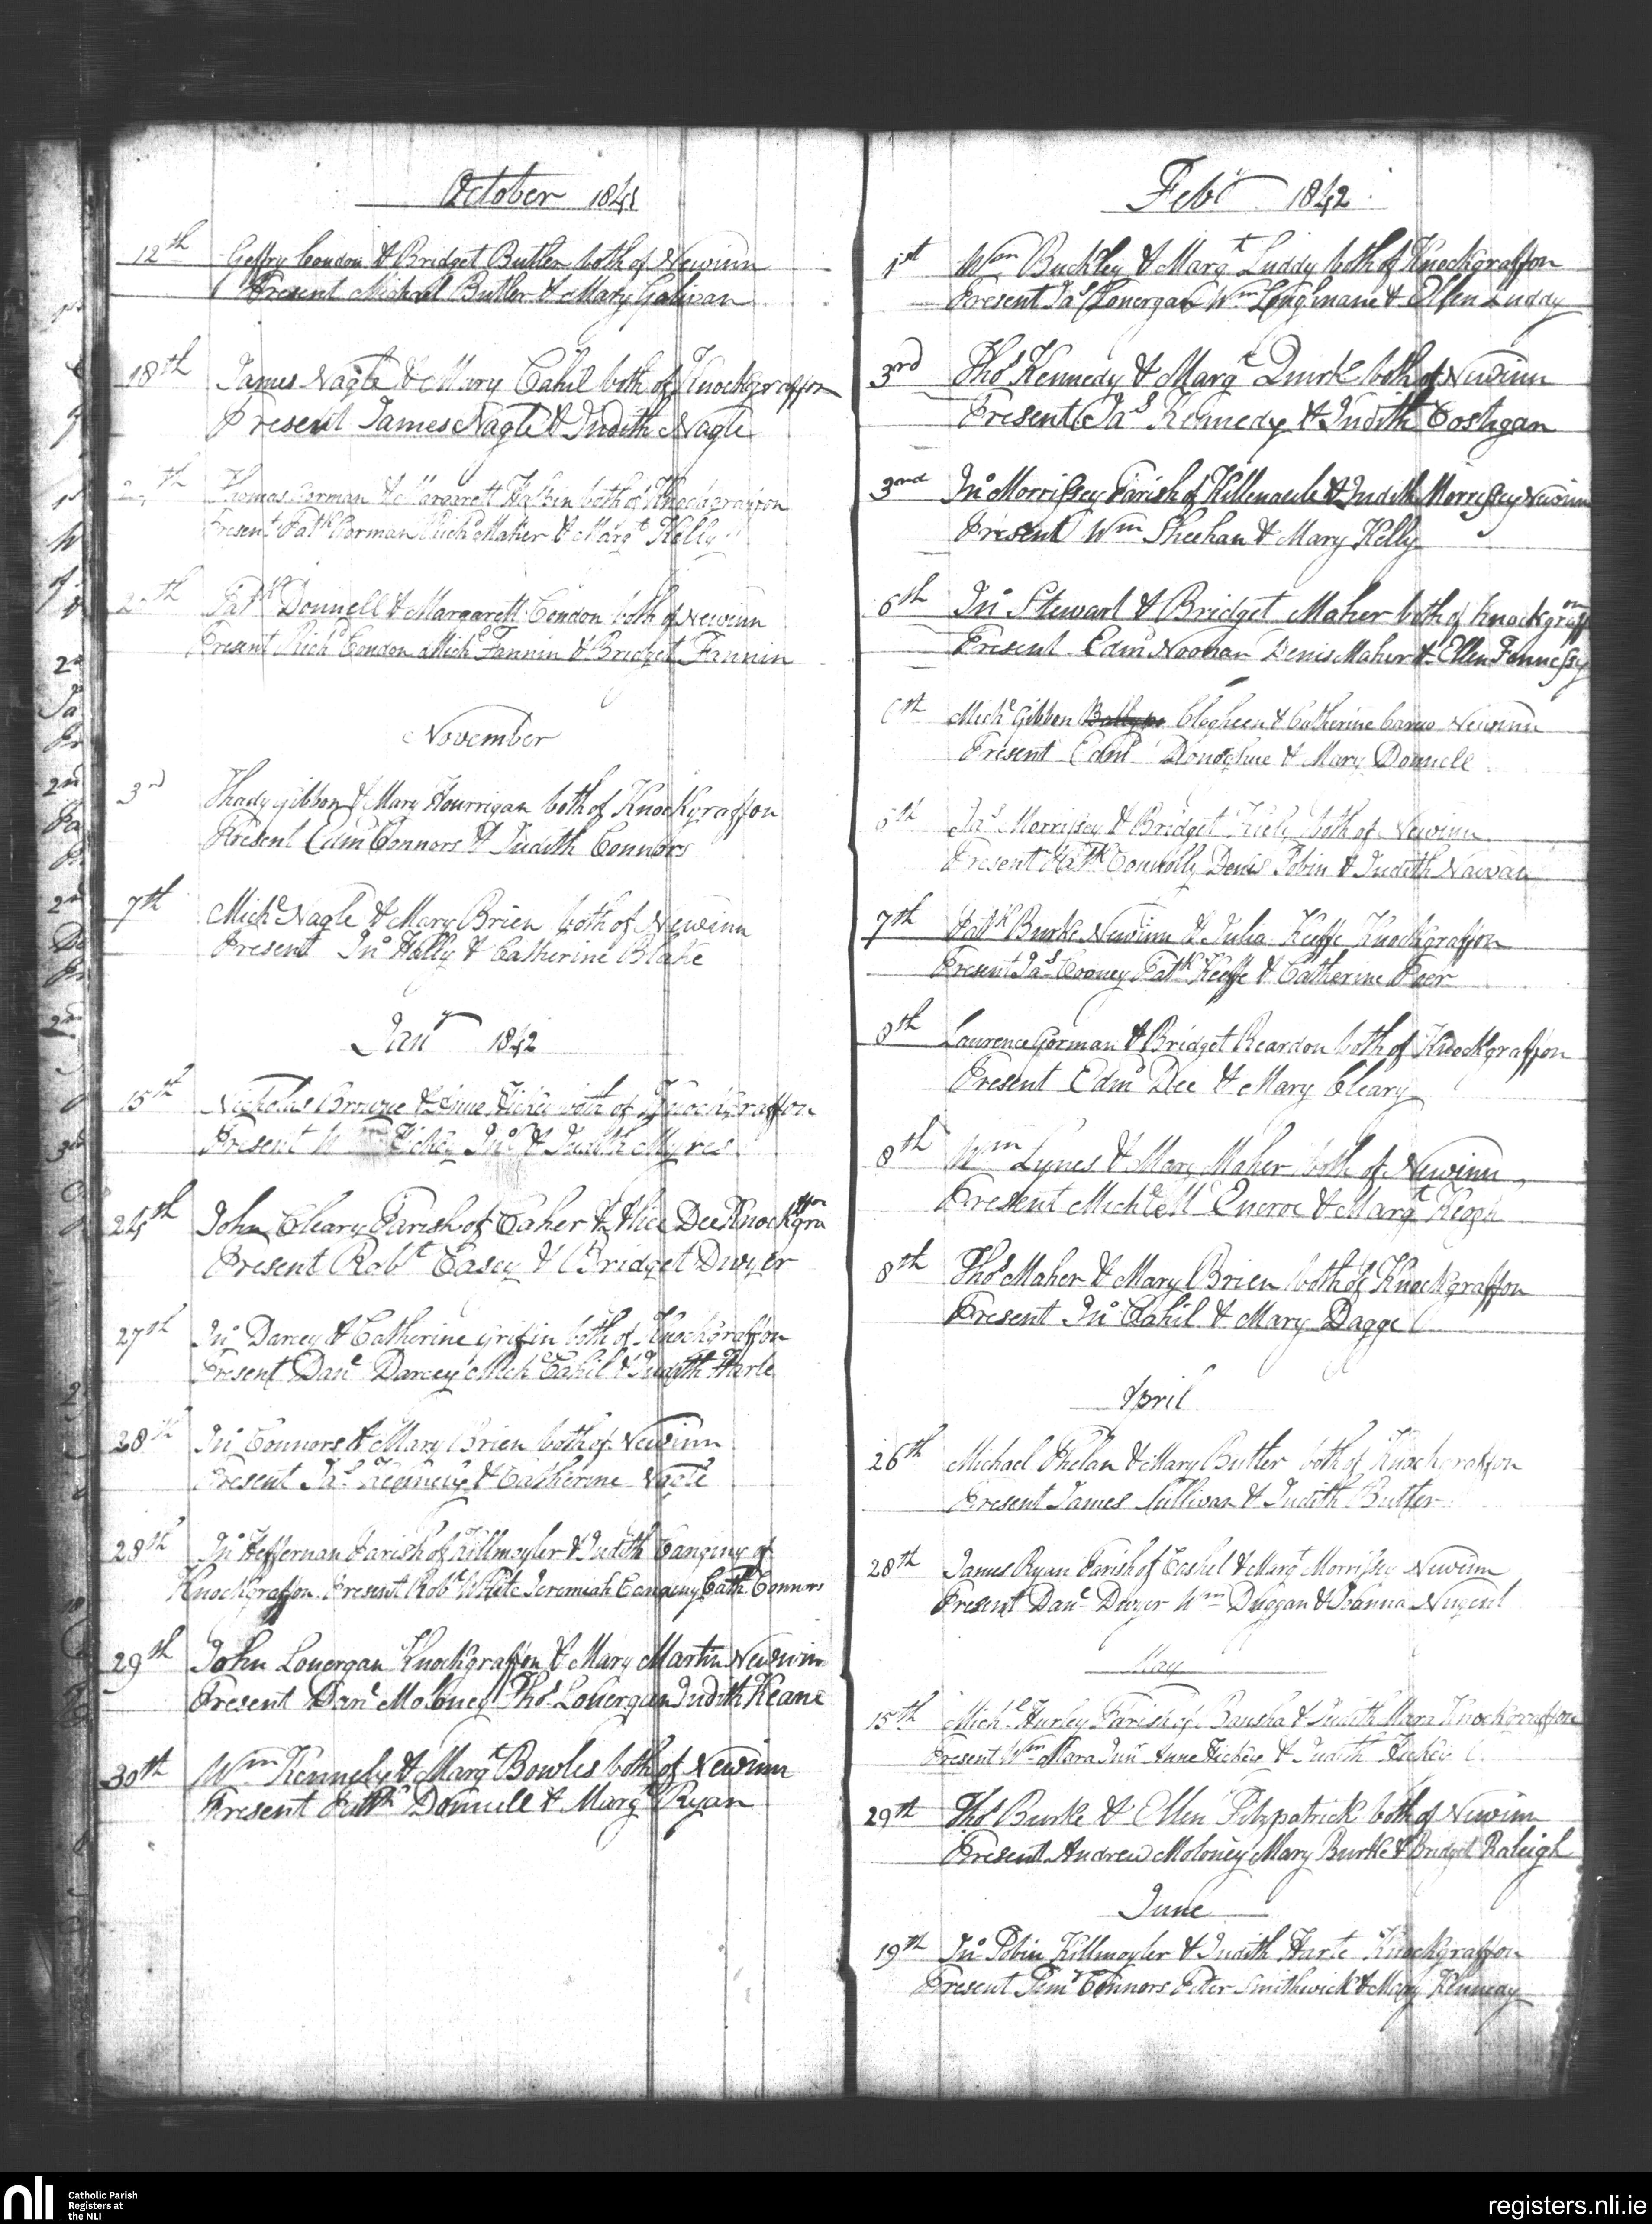 October 1841
12th Geffry Condon & Bridget Butler both of Newinn
Present Michael Butler & Mary Galivan
18th James Nagle & Mary Cahil both of Knockgraffon
Present James Nagle & Judith Nagle
th Thomas Gorman & Margarett Halpin both of Knockgraffon
Present Patk Gorman Michl Maher & Margt Kelly
th Patk Donnell & Margarett Condon both of Newinn
Present Richd Condon Michl Fannin & Bridget Fannin
November
3rd Thady Gibbon & Mary Hourrigan both of Knockgraffon
Present Edmd Connors & Judith Connors
7th Michl Nagle & Mary Brien both of Newinn
Present Jno Hally & Catherine Blake
Jany 1842
15th Nicholas Browne & Anne Hickey both of Knockgraffon
Present Wm Hickey Jno & Judith Myres
24th John Cleary Parish of Caher & Alice Dee Knockgraffon
Present Robt Casey & Bridget Dwyer
27th Jno Darcey & Catherine Grifin both of Knockgraffon
Present Danl Darcey Mich Cahil & Judith Harte
28th Jno Connors & Mary Brien both of Newinn
Present Jas Kennedy & Catherine Nagle
28th Jno Heffernan Parish of Killmoyler & Judith Canginy of
Knockgraffon Present Robt White Jeremiah Canginy Cath Connors
29th John Lonergan Knockgraffon & Mary Martin Newinn
Present Danl Moloney Thos Lonergan Judith Keane
30th Wm Kennely & Margt Bowles both of Newinn
Present Patk Donnell & Margt Ryan
Feby 1842
1st Wm Buckley & Margt Luddy both of Knockgraffon
Present Jas Lonergan Wm Longmane & Ellen Luddy
3rd Thos Kennedy & Margt Quirk both of Newinn
Present Jas Kennedy & Judith Costigan
3nd Jno Morrissey Parish of Killenaule & Judith Morrissey Newinn
Present Wm Sheehan & Mary Kelly
6th Jno Stewart & Bridget Maher both of Knockgraffon
Present Edmd Noonan Denis Maher & Ellen Fennessy
6th Michl Gibbon Clogheen & Catherine Carew Newinn
Present Edmd Donoghue & Mary Donnell
6th Jas Morrissey & Bridget Kiely both of Newinn
Present Patk Connolly Denis Tobin & Judith Nawan
7th Patk Burke Newinn & Julia Keeffe Knockgraffon
Present Jas Crowney Patk Keeffe & Catherine Poer
8th Laurence Gorman & Bridget Reardon both of Knockgraffon
Present Edmd Dee & Mary Cleary
8th Wm Lynes & Mary Maher both of Newinn
Present Michl Mc & Margt Keogh
8th Thos Maher & Mary Brien both of Knockgraffon
Present Jno Cahil & Mary Dagge
April
26th Michael Phelan & Mary Butler both of Knockgraffon
Present James Sullivan & Judith Butler
28th James Ryan Parish of Cashel & Margt Morrissey Newinn
Present Danl Dwyer Wm Duggan & Joanna Nugent
May
15th Michl Hurley Parish of Bansha & Judith Mara Knockgraffon
Present Wm Mara Junr Anne Hickey & Judith Hickey
29th Thos Burke & Ellen Fitzpatrick both of Newinn
Present Andrew Moloney Mary Burke & Bridget Raleigh
June
19th Jno Tobin Killmoyler & Judith Harte Knockgraffon
Present Timy Connors Peter Smithwick & Mary Kennedy
nli Catholic Parish
Registers at
the NLI
registers.nli.ie